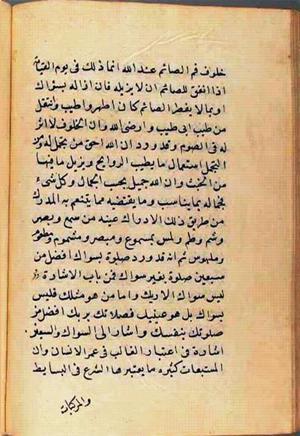 خلوف فم الصائم عند الله انما ذلك في يوم القيامة
اذا اتفق للصائم ان لا يزيله فان ازاله بسواك
او بما لا يفطر الصائم كان اطهر واطيب وانتقل
من طيب الى طيب وارضى الله وان الخلوف لا اثر
له في الصوم وقد ورد ان الله احق من تجمل له ومن
التجمل استعمال ما يطيب الروايح ويزيل ما فيها
من الخبث وان الله جميل يحب الجمال وكل شيء
تجمله بما يناسب وما يقتضيه مما يتنعم به المدرك
من طريق ذلك الادراك عينه من سمع وبصر
وشم وطعم ولمس بمسموع ومبصر ومشموم ومطعوم
وملموس ثم انه قد ورد صلوة بسواك افضل من
سبعين صلوة بغير سواك فمن باب الاشارة
ليس سواك الا ربك واما من هو مثلك فليس
بسواك بل هو عينك فصلاتك بربك افضل من
صلوتك بنفسك واشار الى السواك والسبعين
اشارة في اعتبار الغالب في عمر الانسان وان
السبعات كثيرة ما يعتبرها الشرع في البسايط
والمركبات